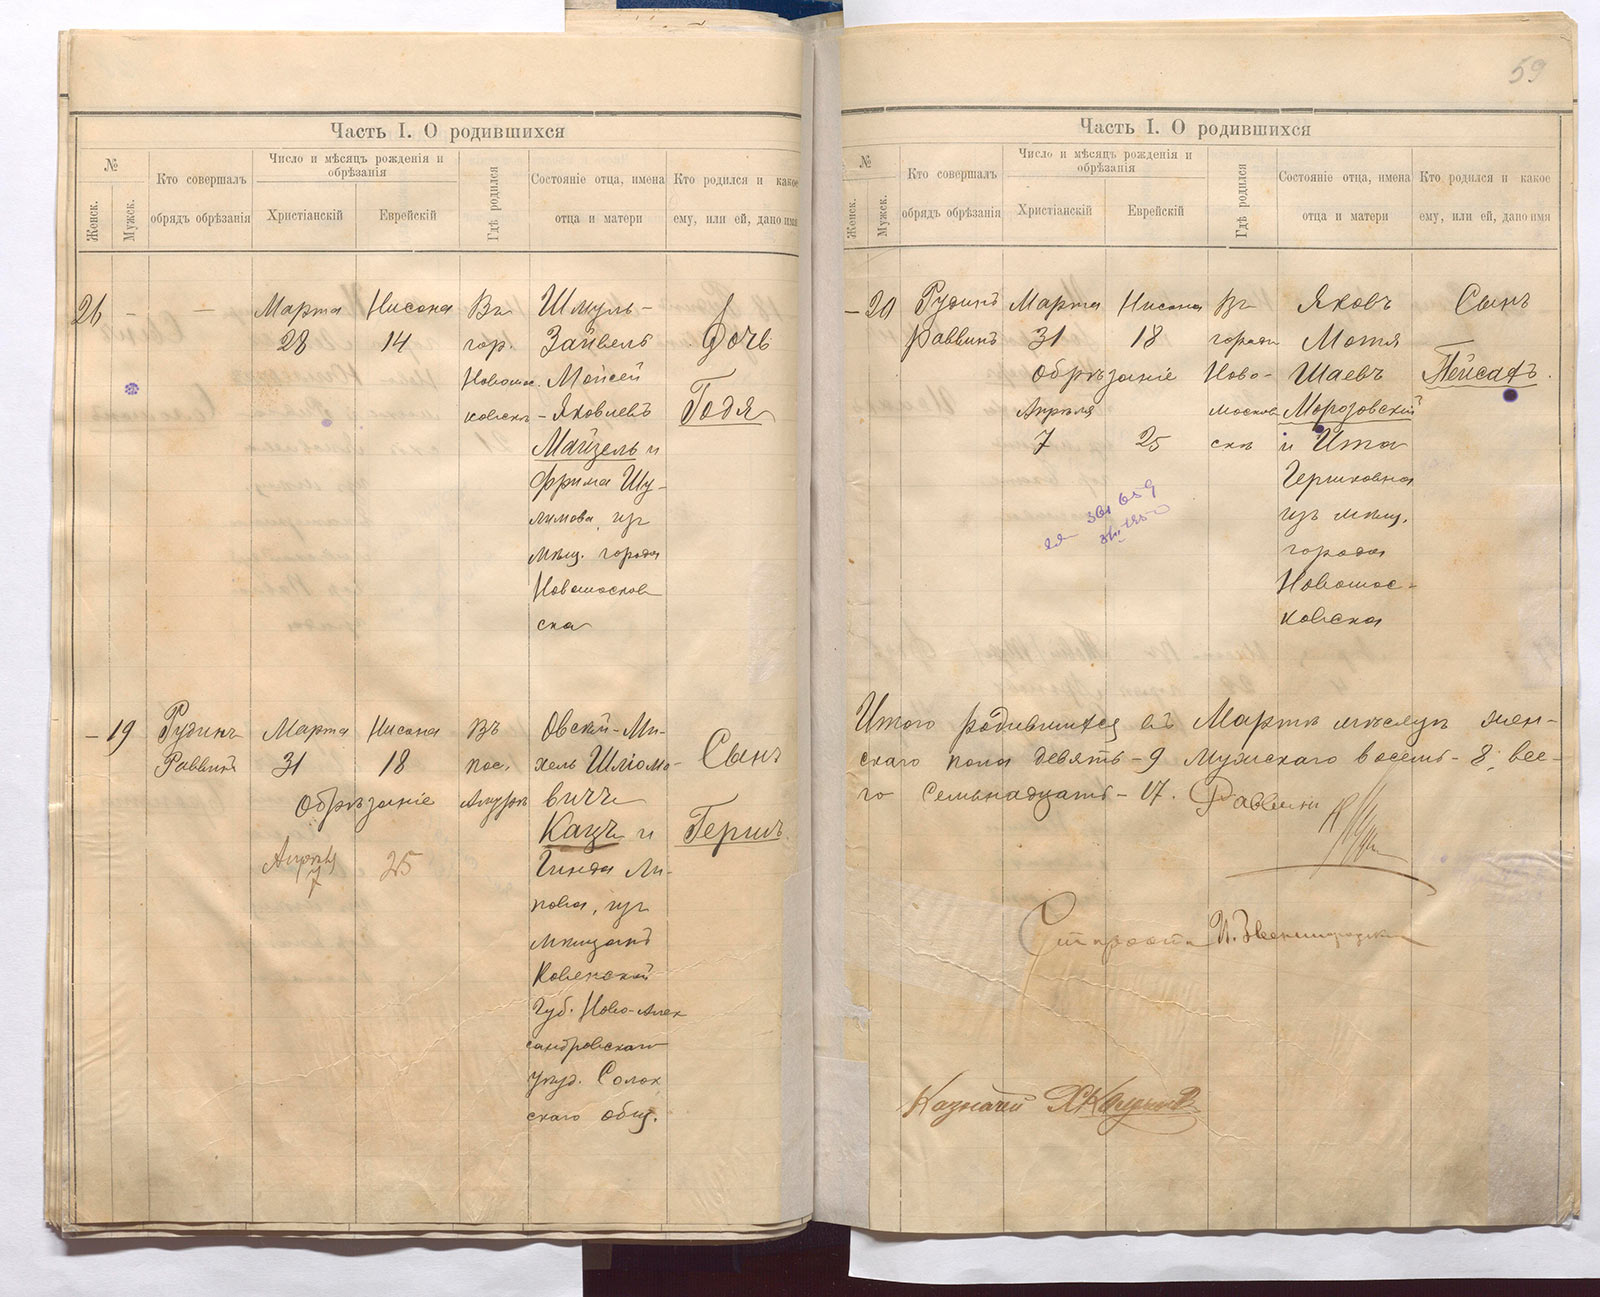 Часть I. О родившихся
№
Женск.
Мужск.
Кто совершалъ
обрядъ обрѣзанія
Число и мѣсяцъ рожденія и
обрѣзанія
Христіанскій
Еврейскій
Гдѣ родился
Состояніе отца, имена
отца и матери
Кто родился и какое
ему, или ей, дано имя
26
-
-
Марта
28
Нисона
14
Въ
гор.
Новомос.
ковскѣ
Шмуль-
Зайвель
Мойсей
-Яковлевъ
Майзель и
Фрима Шу-
лимова, изъ
мѣщ. города
Новомосков
ска
Дочь
Годя
- 19
Рудинъ
Раввинъ
Марта
31
Обрѣзаніе
Апрѣля
7
Нисона
18
25
Въ
пос.
Амурѣ
Овсей-Ми-
хель Шліомо-
вичъ
Кацъ и
Гинда Ли-
пова, изъ
мѣщанъ
Ковенской
Губ. Ново-Алек
сандровскаго
уѣзд. Солок
скаго общ.
Сынъ
Гершъ.
59
Часть I. О родившихся
№
Женск.
Мужск.
Кто совершалъ
обрядъ обрѣзанія
Число и мѣсяцъ рожденія и
обрѣзанія
Христіанскій
Еврейскій
Гдѣ родился
Состояніе отца, имена
отца и матери
Кто родился и какое
ему, или ей, дано имя
- 20
Рудинъ
Раввинъ
Марта
31
Обрѣзаніе
Апрѣля
7
Нисона
18
25
Въ
городѣ
Ново-
москов
скѣ
Яковъ
Мотя
Шаевъ
Морозовскій
и Ита
Гершковна
изъ мѣщ.
города
Новомос-
ковска
Сынъ
Пейсахъ.
Итого родившихся въ Мартѣ мѣсяцѣ жен-
скаго пола девять - 9 Мужскаго восемь - 8, все-
го семьнадцать - 17. Раввинъ
Староста И. Звенигородскій
Казначей